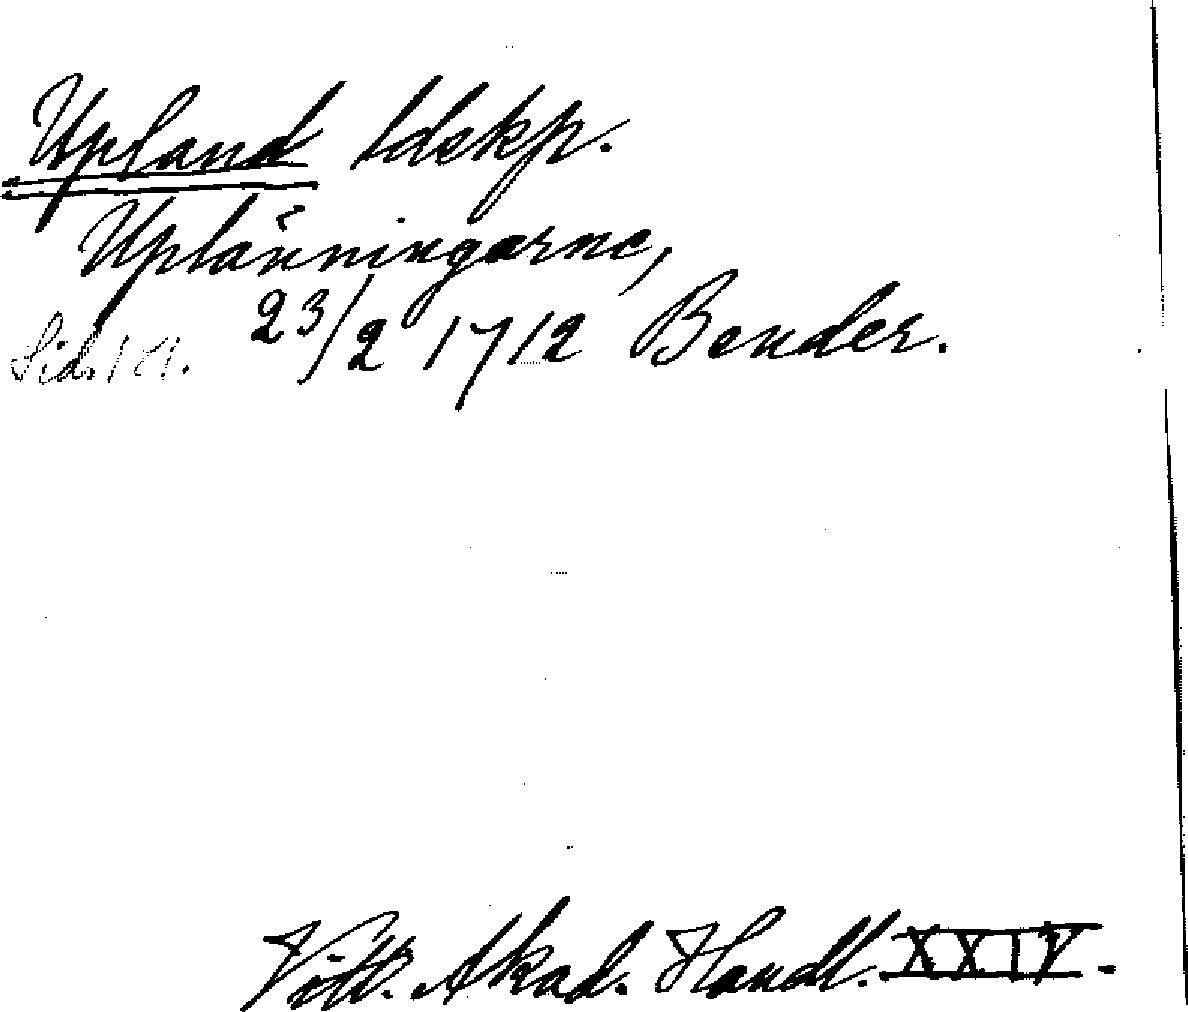 Upland ldskp.
Uplänningarne,
23/2 1712 Bender.
Sid.
Vitt. Akad. Handl. XXIV.